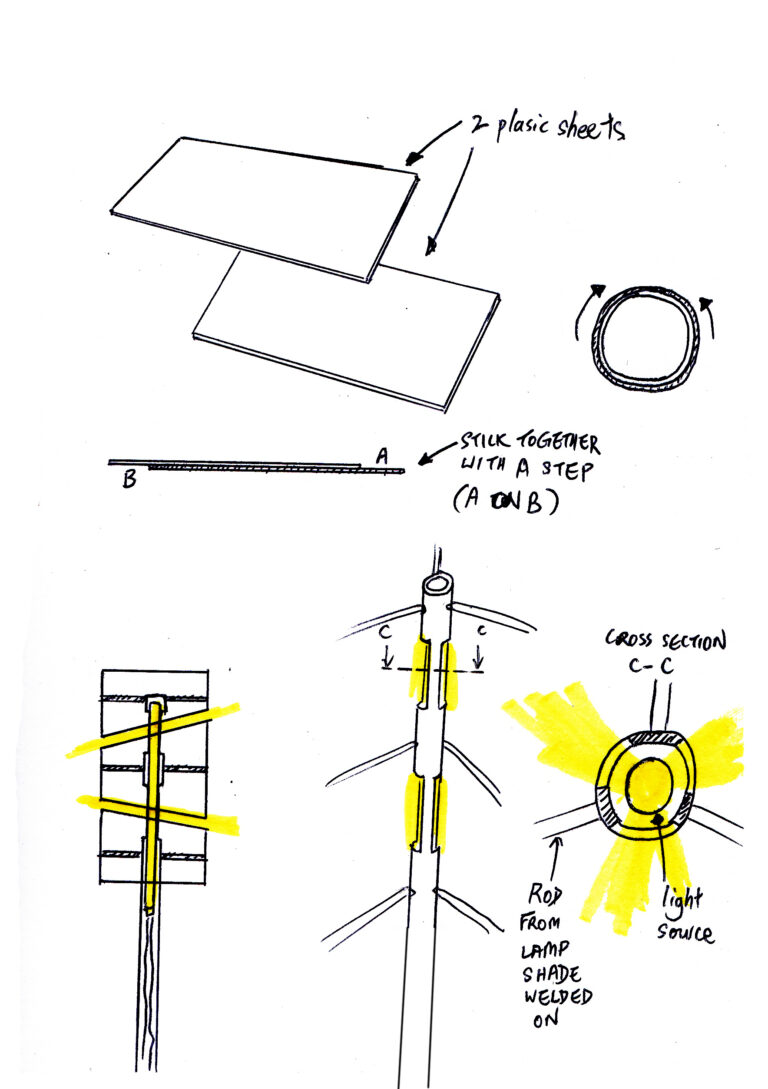 2 plasic sheets
STICK TOGETHER
WITH A STEP
(A ON B)
A
B
C C
CROSS SECTION
C-C
ROD
FROM
LAMP
SHADE
WELDED
ON
light
source